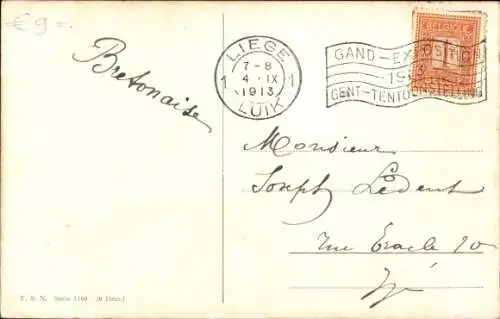 € 9 =
Bretonaise
LIEGE
7-8
1 4 · IX 1
1913
LUIK
BELGIQUE
1
GAND-EXPOSITION
19
GENT-TENTOONSTELLING
Monsieur
Joseph Lédent
rue Eracle 20
T. S. N. Serie 1160 (6 Dess.)